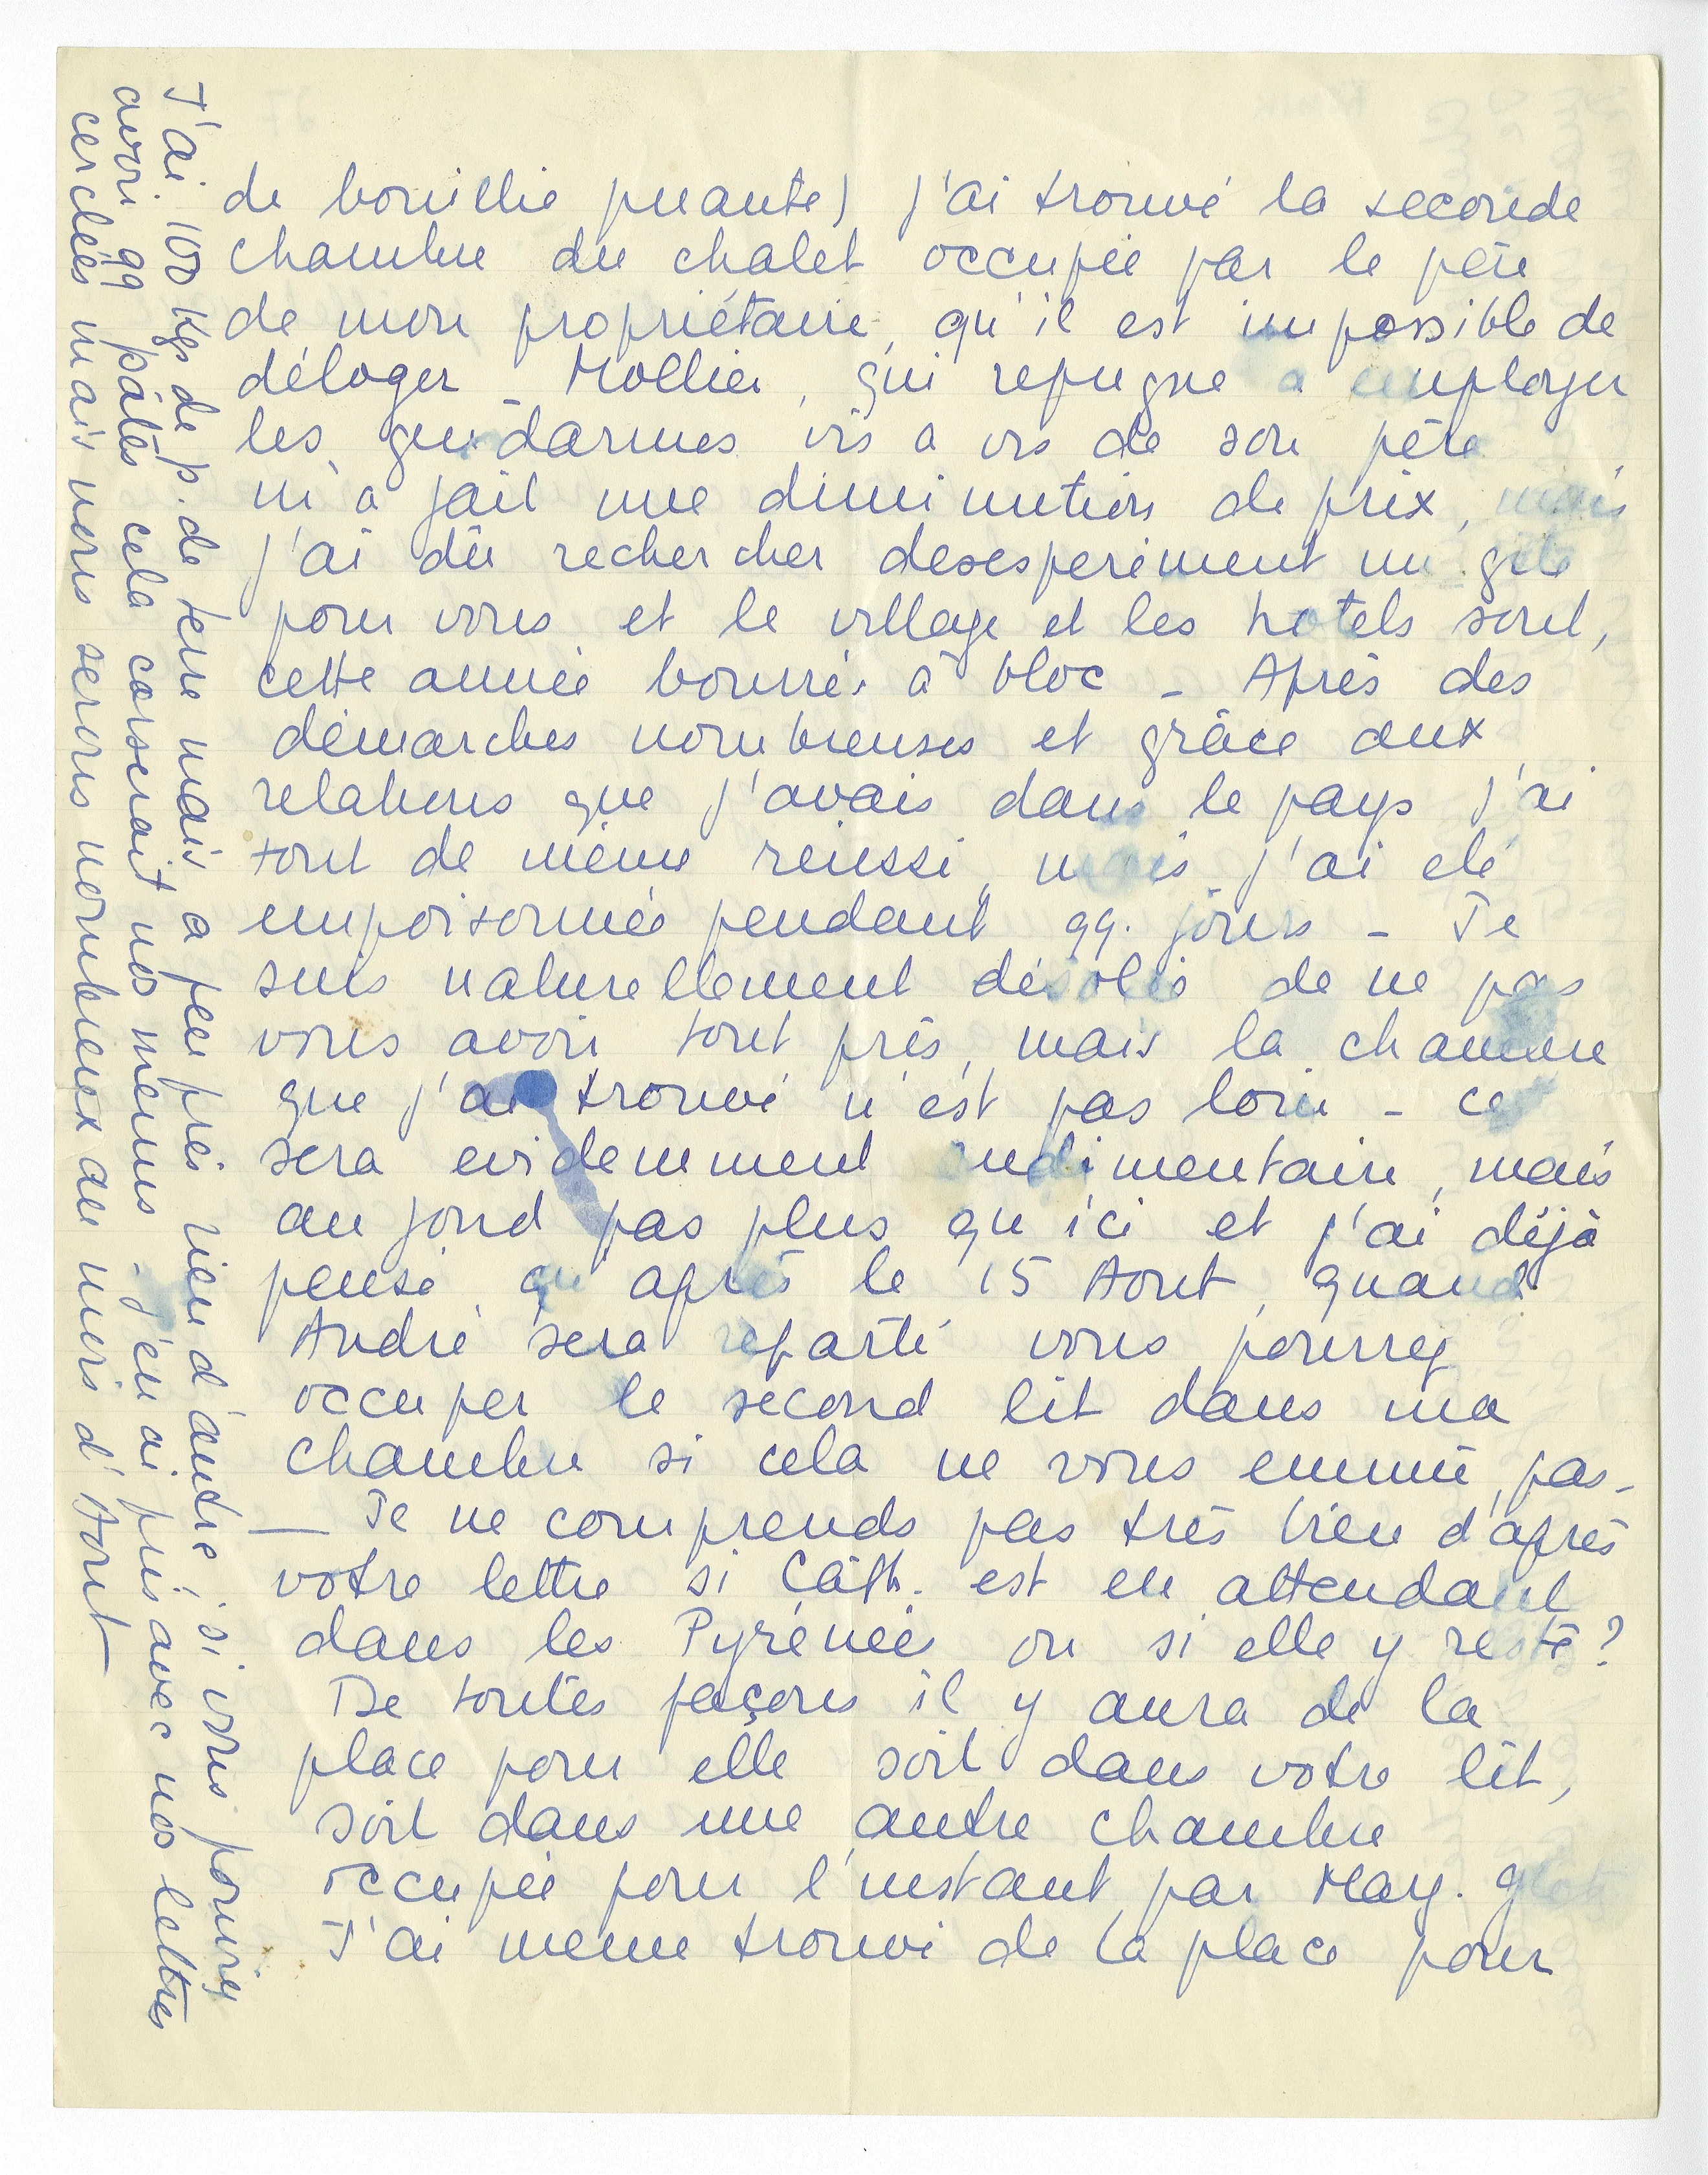 de bouillie puante) j'ai trouvé la seconde
chambre du chalet occupée par le père
de mon propriétaire, qu'il est impossible de
déloger - Mollier, qui repugne a employer
les gendarmes vis a vis de son père
m'a fait une diminution de prix, mais
j'ai dû rechercher desesperement un gite
pour vous et le village et les hotels sont,
cette année bourrés à bloc - Après des
démarches nombreuses et grâce aux
relations que j'avais dans le pays j'ai
tout de même réussi, mais j'ai été
empoisonnée pendant qq. jours - Je
suis naturellement désolée de ne pas
vous avoir tout près, mais la chambre
que j'ai trouvé n'est pas loin - ce
sera evidemment rudimentaire, mais
au fond pas plus qu'ici et j'ai déjà
pensé qu'après le 15 Aout, quand
André sera reparti vous pourrez
occuper le second lit dans ma
chambre si cela ne vous ennuie pas -
— Je ne comprends pas très bien d'après
votre lettre si Cath. est en attendant
dans les Pyrénées ou si elle y reste ?
De toutes façons il y aura de la
place pour elle soit dans votre lit,
soit dans une autre chambre
occupée pour l'instant par May.
J'ai meme trouvé de la place pour
J'ai 100 Kgs de p. de terre mais a peu près rien d'autre, si vous pouviez
avoir qq pâtes cela corserait nos menus - j'en ai pris avec nos lettres
cerclées mais nous serons nombreux au mois d'Aout -